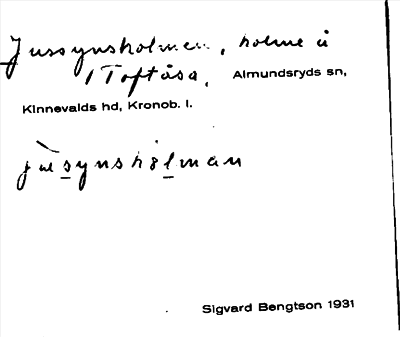 Jussynsholmen, holme å
/ Toftåsa. Almundsryds sn,
Kinnevalds hd, Kronob. l.
jusynshålman
Sigvard Bengtson 1931